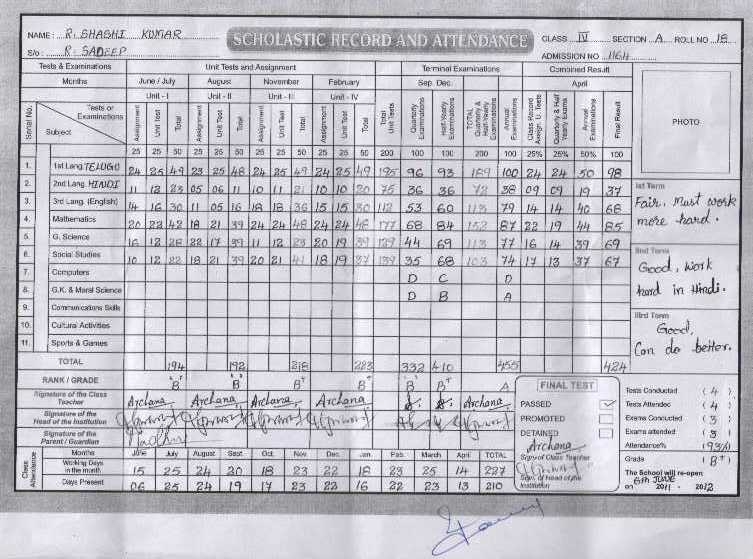 NAME : R. SHASHI KUMAR
SCHOLASTIC RECORD AND ATTENDANCE
CLASS IV SECTION A ROLL NO 18
S/o : R. SADEEP
ADMISSION NO 1164
Tests & Examinations Unit Tests and Assignment Terminal Examinations Combined Result
Months June / July August November February Sep. Dec. April
Unit - I Unit - II Unit - III Unit - IV
Serial No. Tests or Examinations Subject Assignment Unit Test Total Assignment Unit Test Total Assignment Unit Test Total Assignment Unit Test Total Total Unit Tests Quarterly Examinations Half-Yearly Examinations TOTAL Quarterly & Half-Yearly Examinations Annual Examinations Class Record Assign. U. Tests Quarterly & Half Yearly Exams Annual Examinations Final Result
PHOTO
25 25 50 25 25 50 25 25 50 25 25 50 200 100 100 200 100 25% 25% 50% 100
1. 1st Lang. TELUGU 24 25 49 23 25 48 24 25 49 24 25 49 195 96 93 189 100 24 24 50 98
2. 2nd Lang. HINDI 11 12 23 05 06 11 10 11 21 10 10 20 75 36 36 72 38 09 09 19 37
3. 3rd Lang. (English) 14 16 30 11 05 16 18 18 36 15 15 30 112 53 60 113 79 14 14 40 68
4. Mathematics 20 22 42 18 21 39 24 24 48 24 24 48 177 68 84 152 87 22 19 44 85
5. G. Science 16 12 28 22 17 39 11 12 23 20 19 39 129 44 69 113 77 16 14 39 69
6. Social Studies 10 12 22 18 21 39 20 21 41 18 19 37 139 35 68 103 74 17 13 37 67
7. Computers D C D
8. G.K. & Moral Science D B A
9. Communications Skills
10. Cultural Activities
11. Sports & Games
TOTAL 194 192 218 223 332 410 455 424
RANK / GRADE B B B+ B B+ A
Ist Term
Fair, Must work
more hard.
IInd Term
Good, work
hard in Hindi.
IIIrd Term
Good,
Can do better.
Signature of the Class Teacher Archana Archana Archana Archana Archana
Signature of the Head of the Institution
Signature of the Parent / Guardian
FINAL TEST
PASSED
PROMOTED
DETAINED
Archana
Sign of Class Teacher
Sign. of Head of the Institution
Tests Conducted ( 4 )
Tests Attended ( 4 )
Exams Conducted ( 3 )
Exams attended ( 3 )
Attendance% (93%)
Grade (B+)
The School will re-open
on 6th JUNE 2011 - 2012
Class Attendance
Months June July August Sept. Oct. Nov. Dec. Jan. Feb. March April TOTAL
Working Days in the month 15 25 24 20 18 23 22 18 23 25 14 227
Days Present 06 25 24 19 17 23 22 16 22 23 13 210